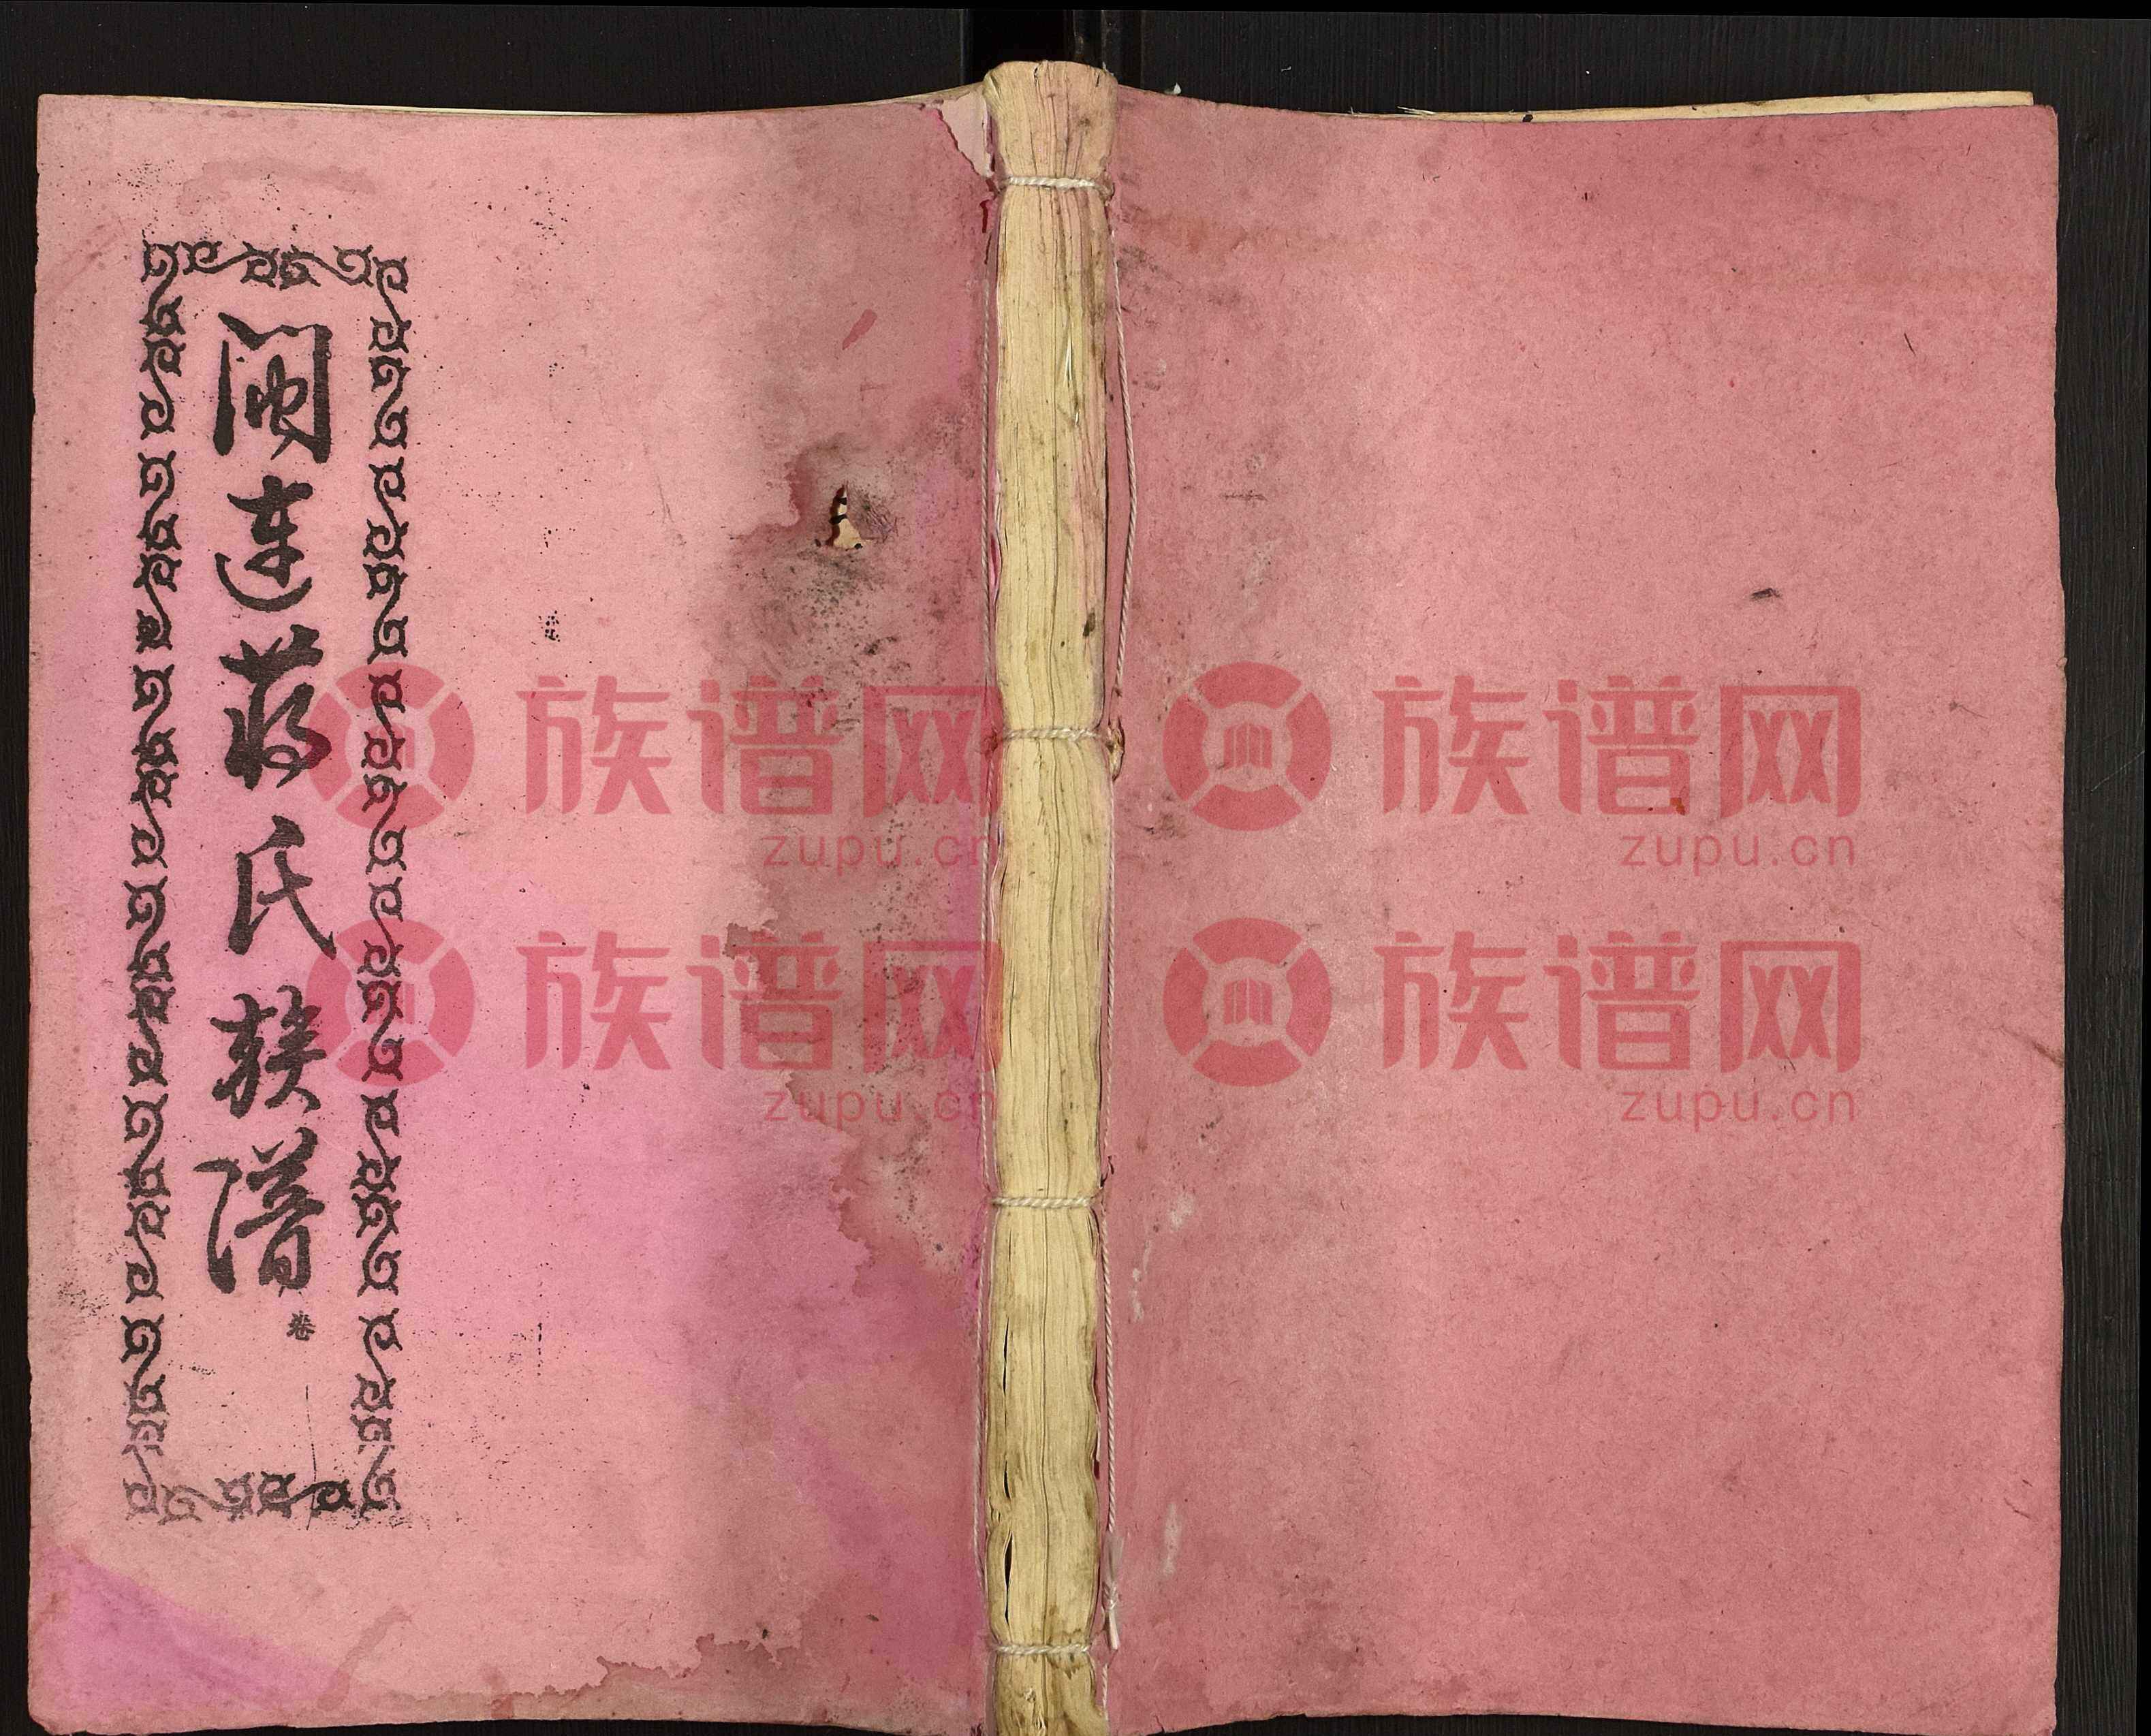 闽连蒋氏族谱
卷
族谱网
zupu.cn
族谱网
zupu.cn
族谱网
zupu.cn
族谱网
zupu.cn